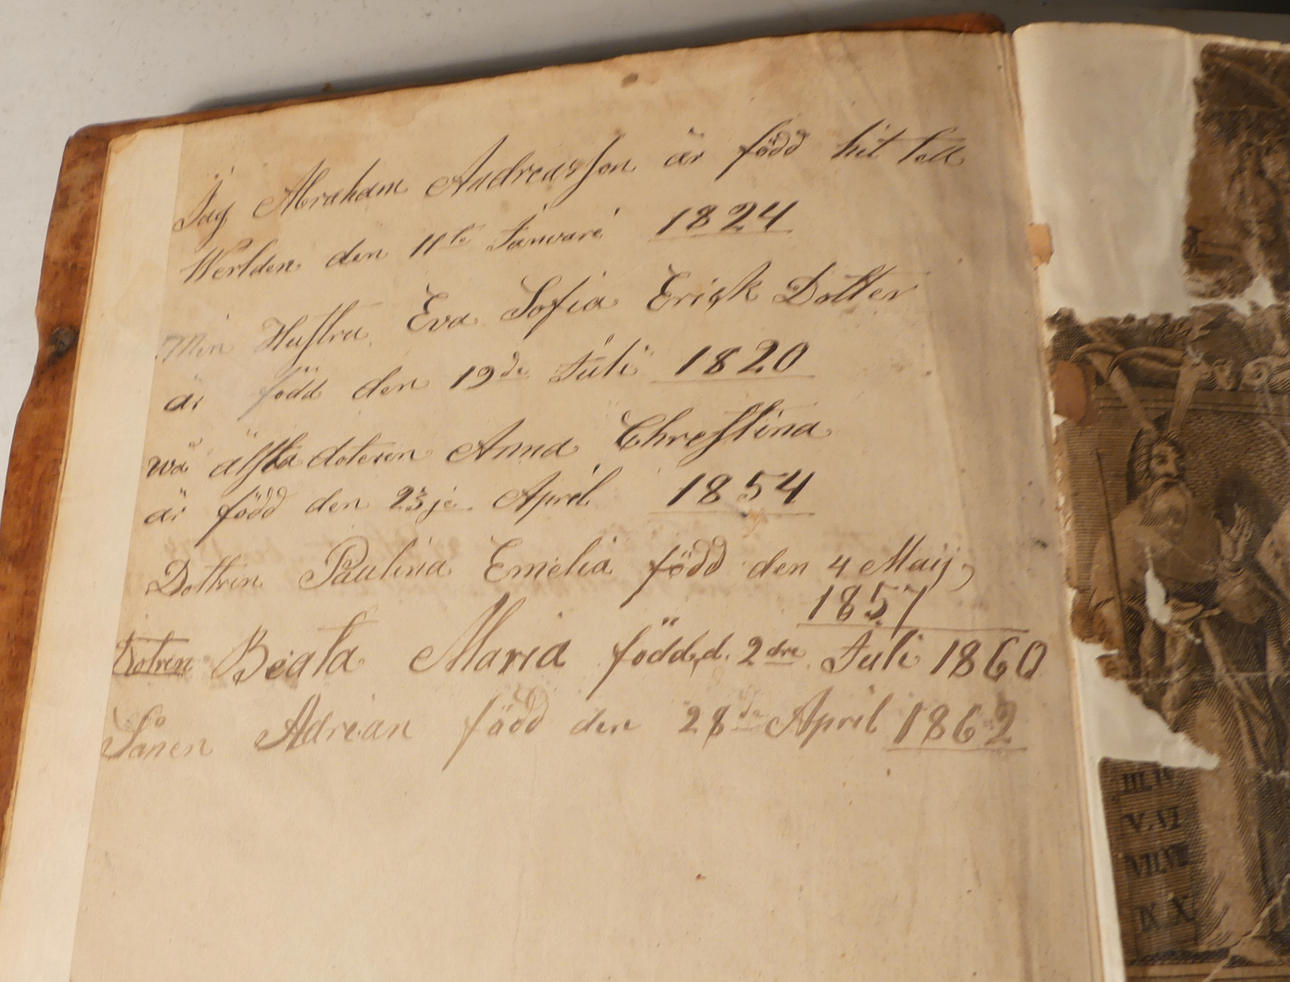 Jag Abraham Andreasson är född hit tell
Werlden den 11te Januari 1824
Min Hustru Eva Sofia Erick Dotter
är född den 19de Juli 1820
wå älsta doteren Anna Chrestina
är född den 23je April 1854
Dottren Paulina Emelia född den 4 Maij
1857
Dotren Beata Maria född,d. 2dre Juli 1860
Sånen Adrian född den 28de April 1862
III. IV
V. VI
VII. VIII
IX X